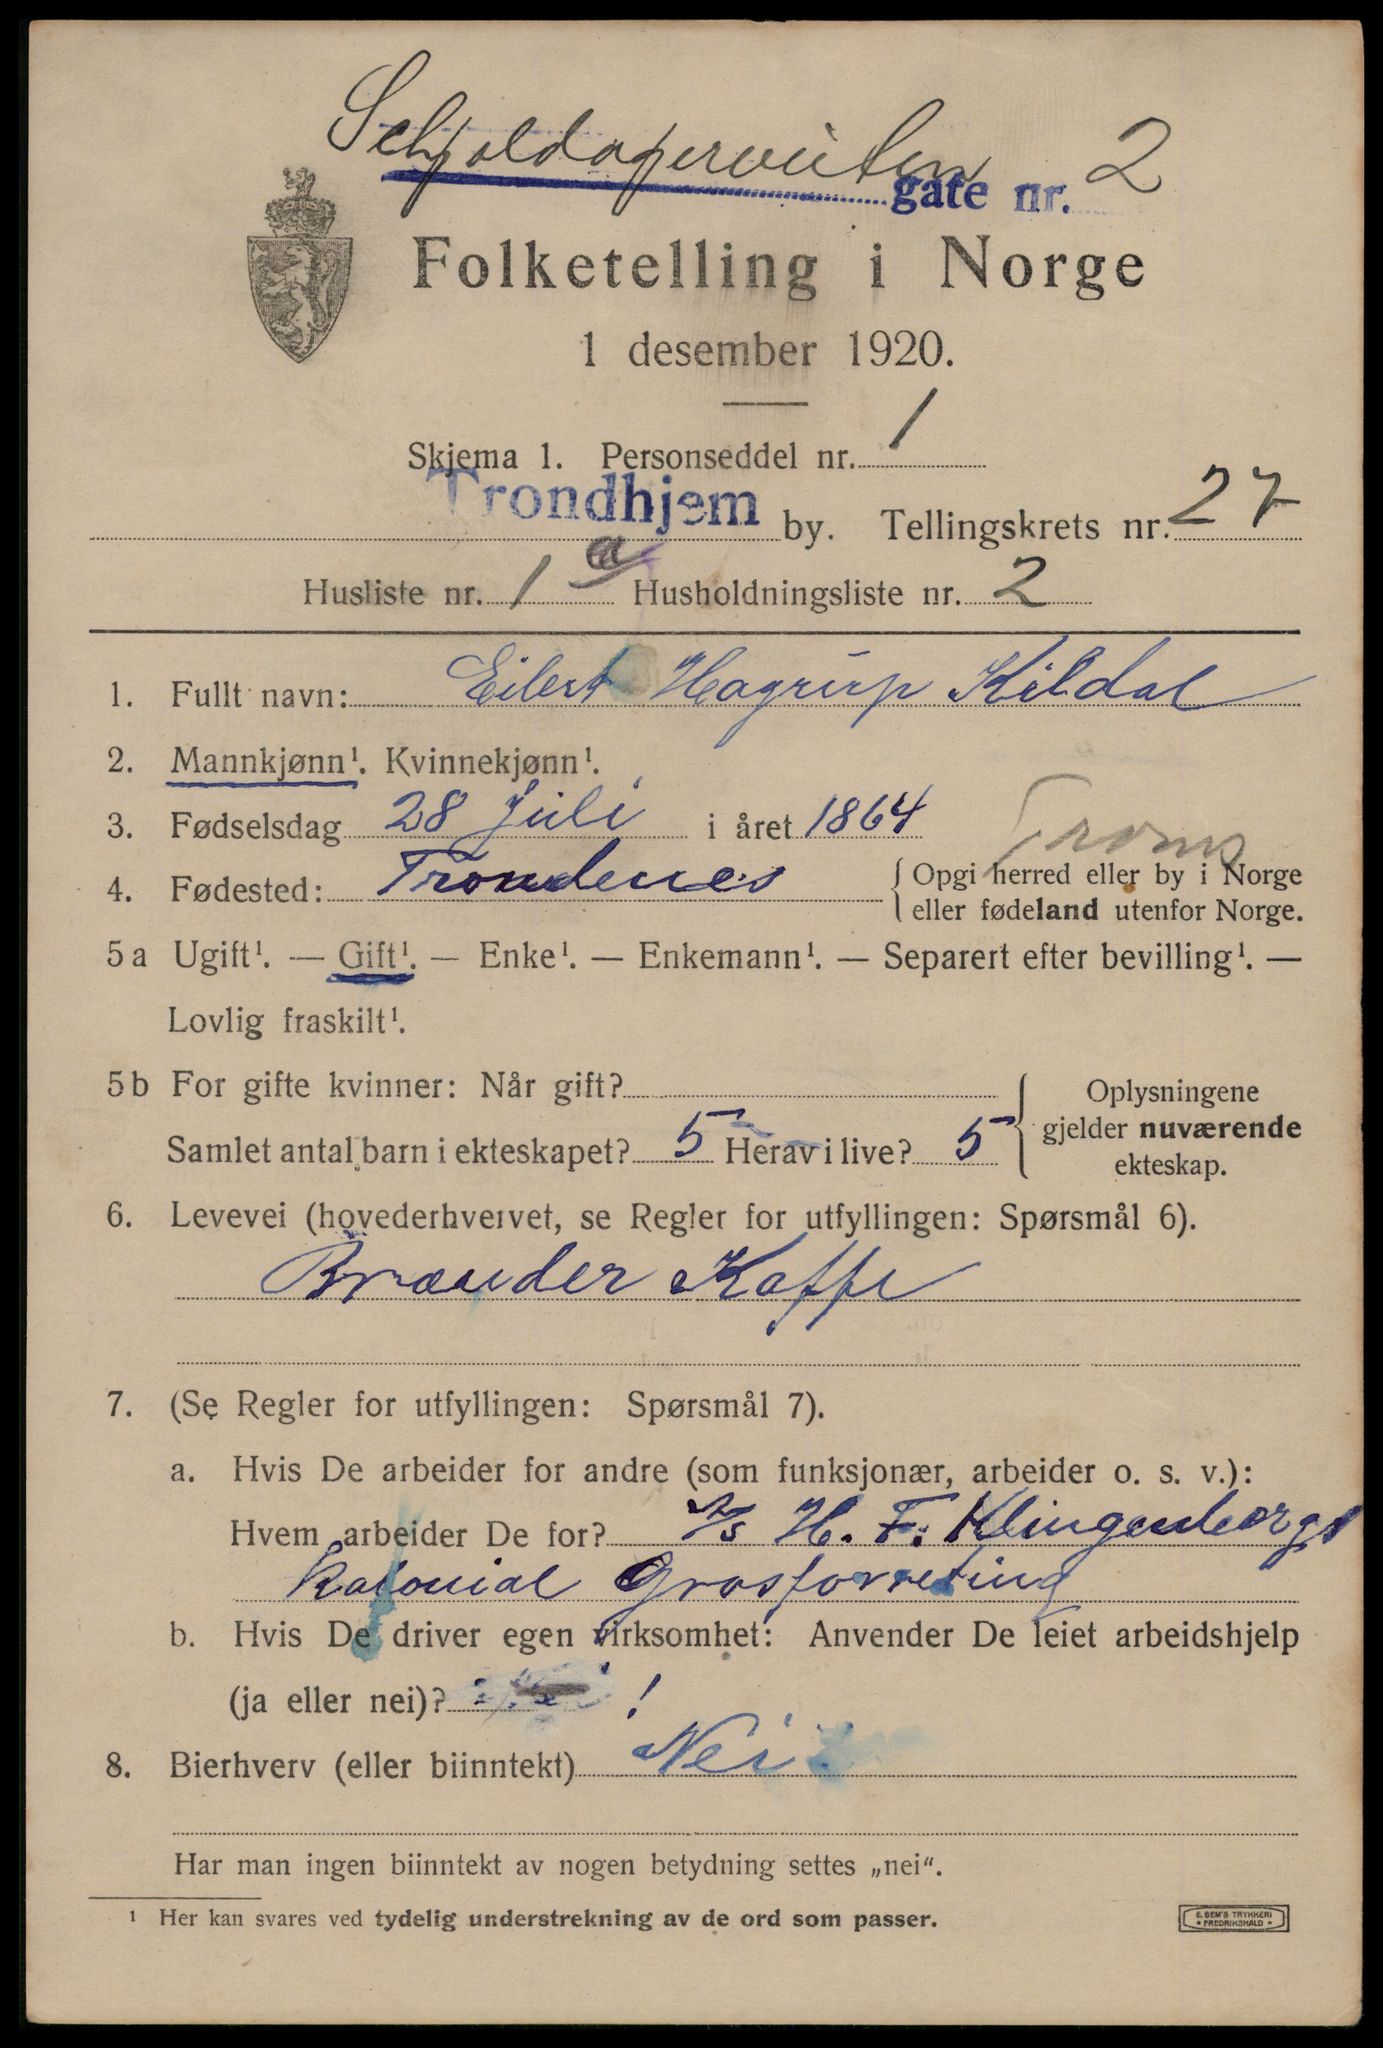 gate nr. 2
Folketelling i Norge
1 desember 1920.
Skjema 1. Personseddel nr. 1
Trondhjem by. Tellingskrets nr. 27
Husliste nr. 1 a Husholdningsliste nr. 2
1. Fullt navn: Eilert Hagrup Kildal
2. Mannkjønn¹. Kvinnekjønn¹.
3. Fødselsdag 28 Juli i året 1864
Troms
4. Fødested: Trondenes { Opgi herred eller by i Norge
eller fødeland utenfor Norge.
5a Ugift¹. — Gift¹. — Enke¹. — Enkemann¹. — Separert efter bevilling¹. —
Lovlig fraskilt¹.
5b For gifte kvinner: Når gift? } Oplysningene
gjelder nuværende
ekteskap.
Samlet antal barn i ekteskapet? 5 Herav i live? 5
6. Levevei (hovederhvervet, se Regler for utfyllingen: Spørsmål 6).
Brænder Kaffe
7. (Se Regler for utfyllingen: Spørsmål 7).
a. Hvis De arbeider for andre (som funksjonær, arbeider o. s. v.):
Hvem arbeider De for? A/s H. F. Klingenbergs
kolonial Grosforreting
b. Hvis De driver egen virksomhet: Anvender De leiet arbeidshjelp
(ja eller nei)? !
8. Bierhverv (eller biinntekt) Nei
Har man ingen biinntekt av nogen betydning settes „nei“.
¹ Her kan svares ved tydelig understrekning av de ord som passer.
E. SEM'S TRYKKERI
FREDRIKSHALD